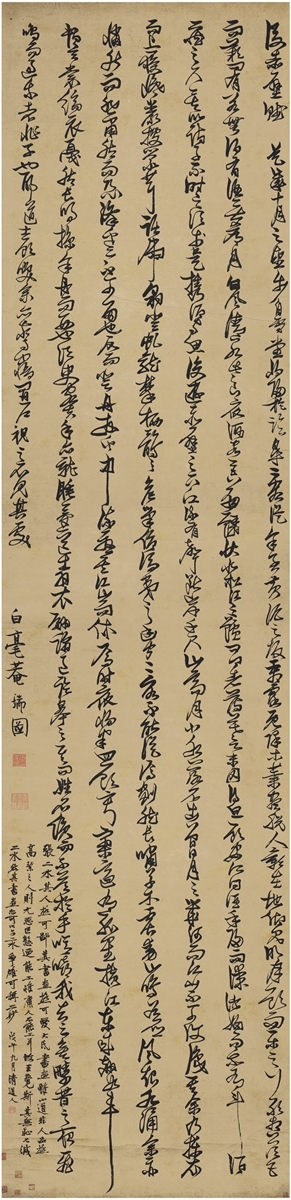 後赤壁賦 是歲十月之望步自雪堂將歸於臨皋二客從余過黃泥之坂霜露既降木葉盡脫人影在地仰見明月顧而樂之行歌相答已
而歎曰有客無酒有酒無肴月白風清如此良夜何客曰今者薄暮舉網得魚巨口細鱗狀如松江之鱸顧安所得酒乎歸而謀諸婦婦曰我有斗酒
藏之久矣以待子不時之須於是攜酒與魚復遊於赤壁之下江流有聲斷岸千尺山高月小水落石出曾日月之幾何而江山不可復識矣余乃攝衣
而上履巉巖披蒙茸踞虎豹登虬龍攀栖鶻之危巢俯馮夷之幽宮蓋二客不能從焉劃然長嘯草木震動山鳴谷應風起水涌余亦
悄然而悲肅然而恐凜乎其不可留也反而登舟放乎中流聽其所止而休焉時夜將半四顧寂寥適有孤鶴橫江東來翅如車
輪玄裳縞衣戛然長鳴掠余舟而西也須臾客去余亦就睡夢一道士羽衣翩躚過臨皋之下揖余而言曰赤壁之遊樂乎問其姓名俛而不答嗚呼噫嘻我知之矣疇昔之夜飛
鳴而過余者非子也耶道士顧笑余亦驚寤開戶視之不見其處
白毫菴瑞圖
張二水其人無可評其書